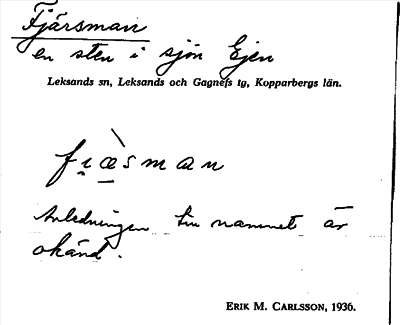 Fjärsman
en sten i sjön Ejen
Leksands sn, Leksands och Gagnefs tg, Kopparbergs län.
fı̣æ̀sman
Anledningen till namnet är
okänd.
ERIK M. CARLSSON, 1936.